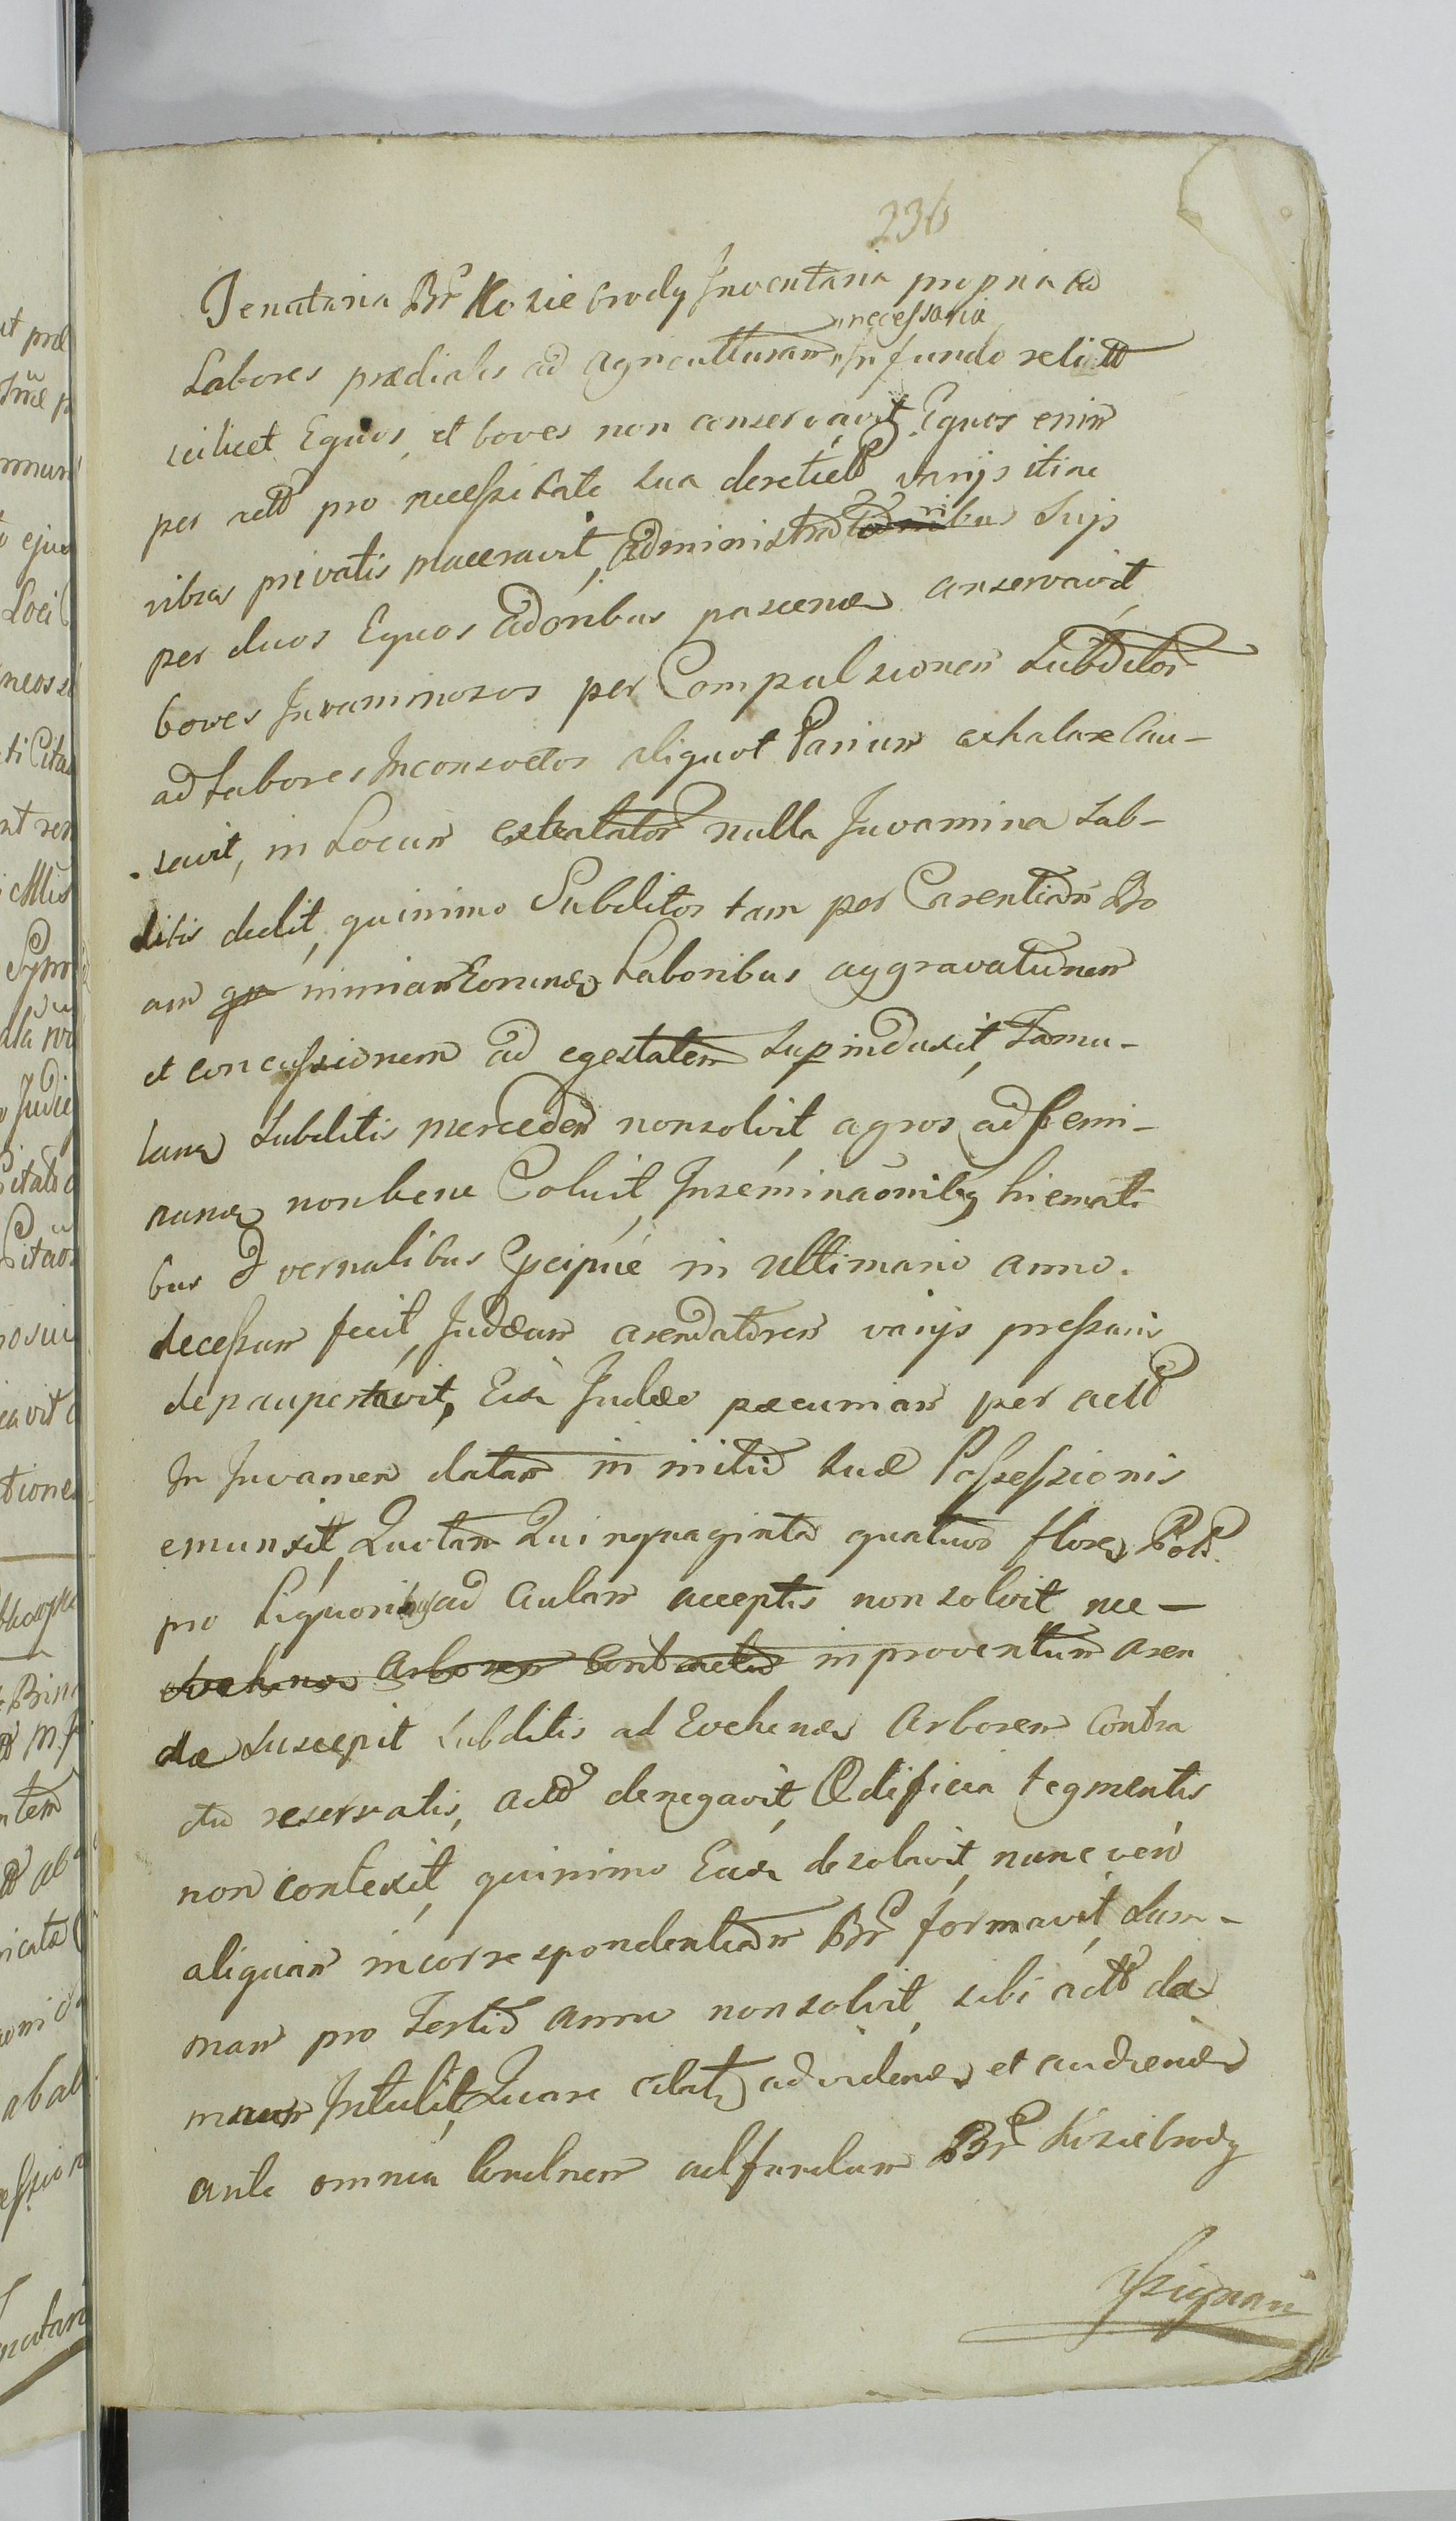 236
Tenutaria Br Koziebrody Inventaria propria ad
necessaria
Labores prædiales ad agriculturam in fundo relict
scilicet Equos, et boves non conservavit, Equos enim
per act pro necessitate sua derelict varijs itine
ribus privatis maceravit, administratoribus suis
per duos Equos adoribus pascend conservavit,
boves Juvaminosos per Compulsionem Subditor
ad Labores Inconsvetos aliquot Parium exhalare Cau-
savit, in Locum exhalator nulla Juvamina Sub-
ditis dedit, quinimo Subditos tam per Carentiam Bo
um qu nimiam Eorund Laboribus aggravationem
et concussionem ad egestatem Sup induxit, Famu-
lana Subditis mercedem non solvit, agros ad semi-
nand non bene Coluit, Inseminaonibq hiemali
bus et vernalibus pcipue in ultimario anno.
decessum fecit, Judæum arendatorem varijs pressuris
depaupertavit, Eid Judæo pæcuniam per act
In Juvamen datam in initio suæ Possessionis
emunxit, Quotam Quinquaginta quatuor flor Pol.
pro Liquoribus ad aulam acceptis non solvit nec-
evehend arborem Contractu in proventum aren
dæ suscepit Subditis ad Evehend arborem Contra
ctu reservatis, act denegavit, Ædificia tegmentis
non contexit, quinimo Ead desolavit, nunc verò
aliquam incorrespondentiam Br formavit, Sum-
mam pro Tertio anno non solvit, sibi act da
mnum Intulit, Quare citat ad vidend et audiend
ante omnia Condnem ad fundum Br Koziebrody